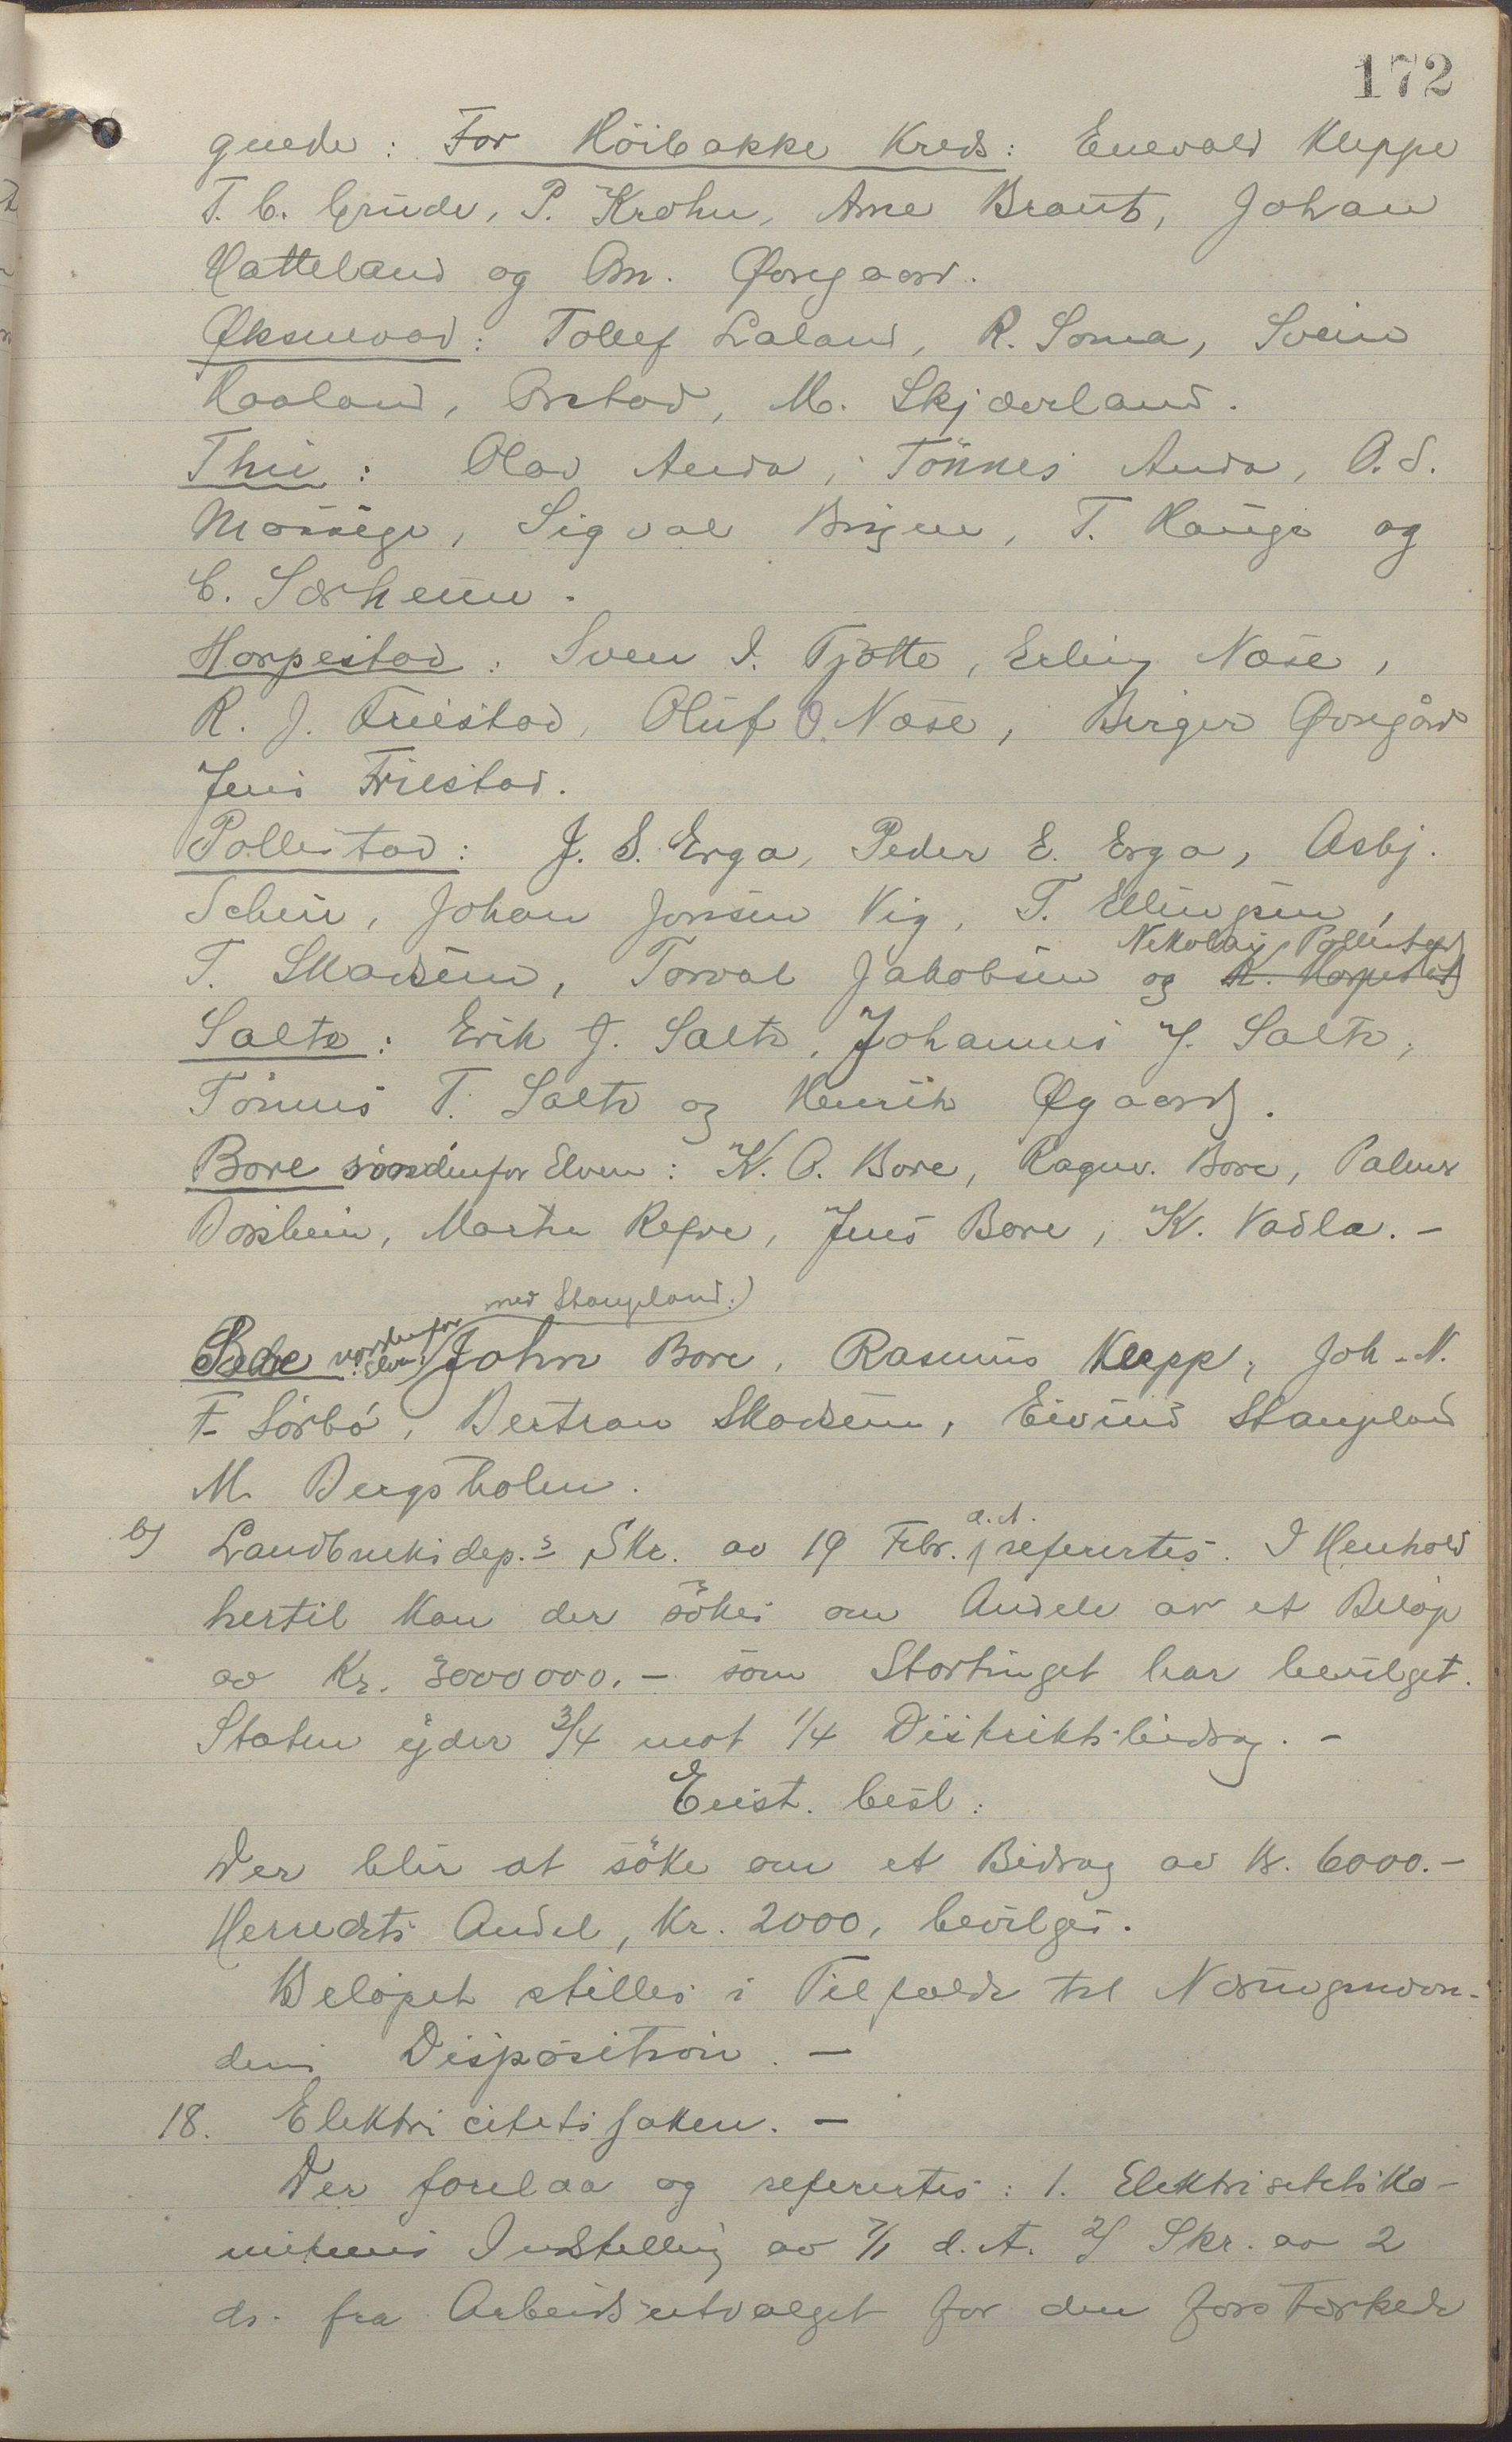 172
gnede: For Höibakke Kreds: Enevald Kleppe
T. C. Grude, P. Krohn, Arne Braut, Johan
Hatteland og Om. Øvregaard.
Øksnevad: Tollef Laland, R. Soma, Svein
Haaland, Orstad, M. Skjæveland.
Thu: Olav Anda, Tönnes Anda, O. S.
Mossige, Sigval Bryne, T. Hauge og
C. Særheim.
Horpestad: Sven I. Tjötta, Erling Næse,
R. J. Friestad, Oluf O. Næse, Birger Øvregård
Jens Friestad.
Pollestad: J. S. Erga, Peder E. Erga, Asbj.
Schei, Johan Jonsen Vig, T. Ellingsen,
Nikolai Pollestad
T. Skadsem, Torval Jakobsen og K. Horpestad
Salte: Erik J. Salte, Johannes J. Salte,
Tönnes T. Salte og Henrik Øgaard.
Bore söndenfor Elven: K. O. Bore, Ragnv. Bore, Palmer
Orsheim, Martin Refve, Jens Bore, K. Vadla. –
med Stangeland.)
Bore nordenfor Elven: (John Bore, Rasmus Klepp, Joh. N.
F. Sörbö, Bertran Skadsem, Eivind Stangeland
M. Bergsholm.
b) Landbruksdep.s Skr. av 19 Febr. d.A. refertes. I Henhold
hertil kan der sökes om Andele av et Beløp
av Kr. 3000000.– som Stortinget har bevilget.
Staten yder 3/4 mot 1/4 Distriktsbidrag. –
Enst. besl:
Der blir at söke om et Bidrag av Kr. 6000.–
Herredets Andel, Kr. 2000, bevilges.
Beløpet stilles i Tilfælde til Næringsnevn-
dens Disposition. –
18. Elektricitetssaken. –
Der forelaa og refertes: 1. Elektricitetsko-
miteens Indstilling av 7/1 d.A. 2) Skr. av 2
ds. fra Arbeidsutvalget for den forsterkede